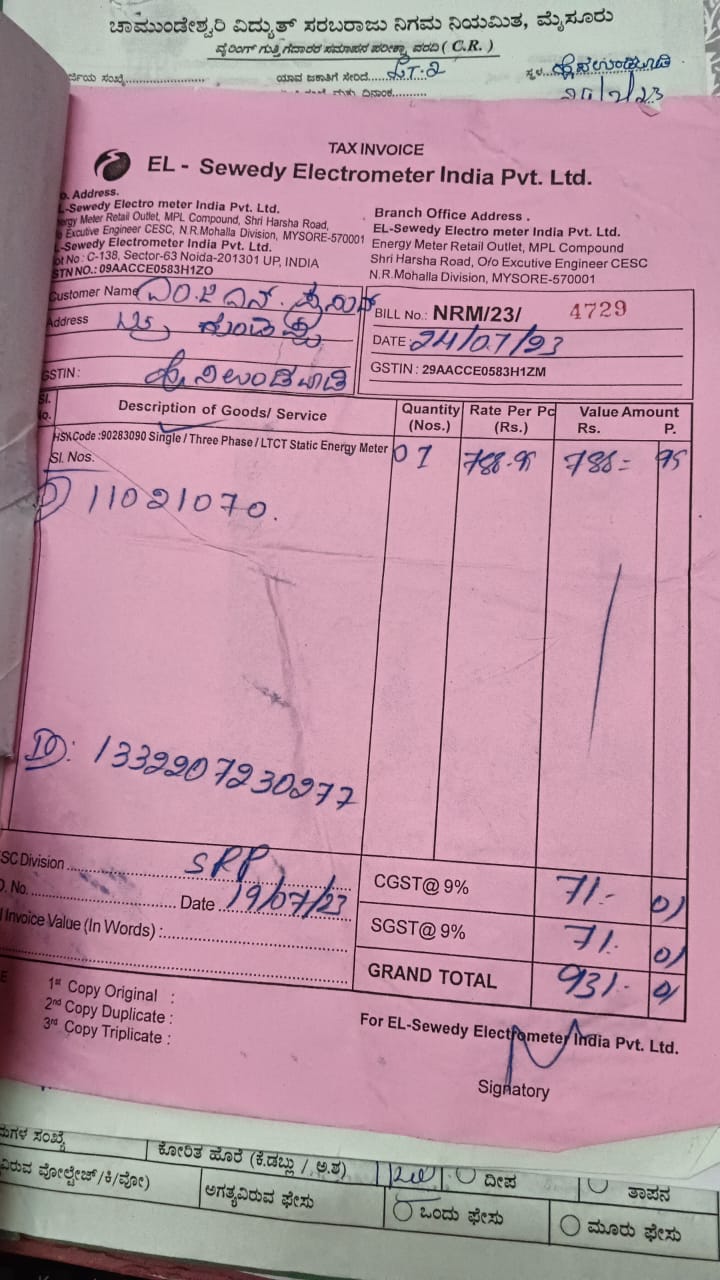 ಚಾಮುಂಡೇಶ್ವರಿ ವಿದ್ಯುತ್ ಸರಬರಾಜು ನಿಗಮ ನಿಯಮಿತ, ಮೈಸೂರು
ವೈರಿಂಗ್ ಗುತ್ತಿಗೆದಾರರ ಸಮಾಪನ ಪರೀಕ್ಷಾ ವರದಿ ( C.R. )
ಸಂಖ್ಯೆ ಯಾವ ಜಕಾತಿಗೆ ಸೇರಿದೆ LT-2 ಸ್ಥಳ
2/23
TAX INVOICE
EL - Sewedy Electrometer India Pvt. Ltd.
o. Address.
L-Sewedy Electro meter India Pvt. Ltd.
ergy Meter Retail Outlet, MPL Compound, Shri Harsha Road,
Excutive Engineer CESC, N.R.Mohalla Division, MYSORE-570001
-Sewedy Electrometer India Pvt. Ltd.
ot No : C-138, Sector-63 Noida-201301 UP, INDIA
STN NO.: 09AACCE0583H1ZO
Branch Office Address .
EL-Sewedy Electro meter India Pvt. Ltd.
Energy Meter Retail Outlet, MPL Compound
Shri Harsha Road, O/o Excutive Engineer CESC
N.R.Mohalla Division, MYSORE-570001
Customer Name
Address
GSTIN :
BILL No.: NRM/23/ 4729
DATE : 24/07/23
GSTIN : 29AACCE0583H1ZM
Sl. No. Description of Goods/ Service Quantity (Nos.) Rate Per Pc (Rs.) Value Amount Rs. P.
HSN Code :90283090 Single / Three Phase / LTCT Static Energy Meter 01 788.95 788= 95
Sl. Nos.
1) 11021070.
ID: 1332207230277
SC Division SRP
CGST@ 9% 71.- 01
O. No. Date 19/07/23
SGST@ 9% 71. 01
l Invoice Value (In Words) :
GRAND TOTAL 931.- 01
E
1st Copy Original :
2nd Copy Duplicate :
3rd Copy Triplicate :
For EL-Sewedy Electrometer India Pvt. Ltd.
Signatory
ಸಂಖ್ಯೆ ಕೋರಿತ ಹೊರೆ (ಕೆ.ಡಬ್ಲು / ಅ.ಶ) ದೀಪ ತಾಪನ
ವಿರುವ ವೋಲ್ಟೇಜ್/ಕಿ/ವೋ) ಅಗತ್ಯವಿರುವ ಫೇಸು ಒಂದು ಫೇಸು ಮೂರು ಫೇಸು